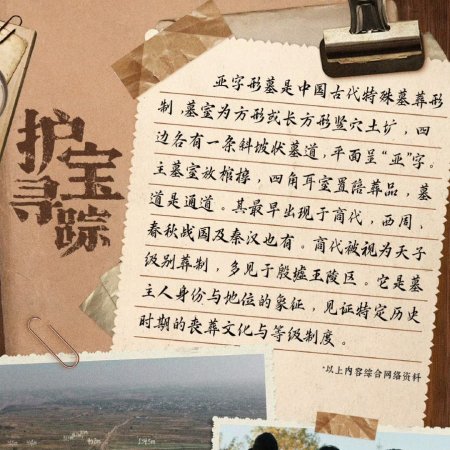 护宝
寻踪
亚字形墓是中国古代特殊墓葬形
制，墓室为方形或长方形竖穴土圹，四
边各有一条斜坡状墓道，平面呈“亚”字。
主墓室放棺椁，四角耳室置陪葬品，墓
道是通道。其最早出现于商代，西周、
春秋战国及秦汉也有。商代被视为天子
级别葬制，多见于殷墟王陵区。它是墓
主人身份与地位的象征，见证特定历史
时期的丧葬文化与等级制度。
*以上内容综合网络资料